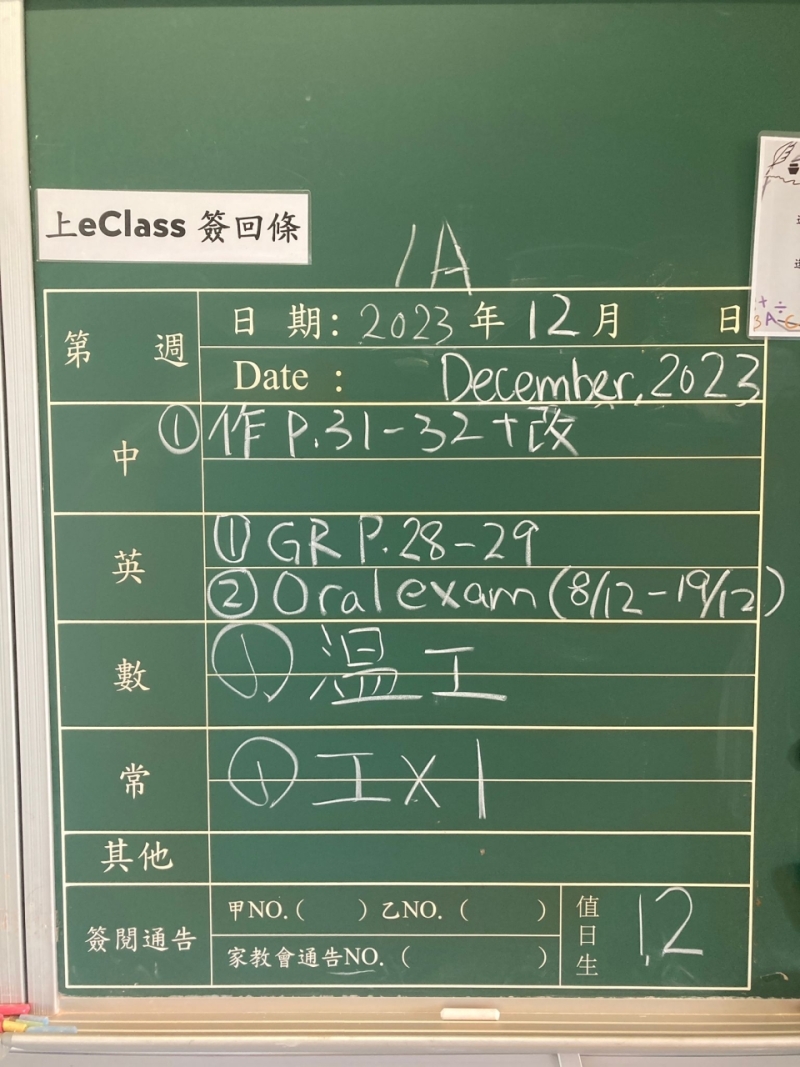 上eClass 簽回條
1A
第 週
日 期: 2023 年 12 月 日
Date : December, 2023
中
① 作 P.31-32+改
英
① GR P.28-29
② Oral exam (8/12-19/12)
數
① 溫工
常
① 工x1
其他
簽閱通告
甲NO.( ) 乙NO. ( )
家教會通告NO. ( )
值日生
1,2